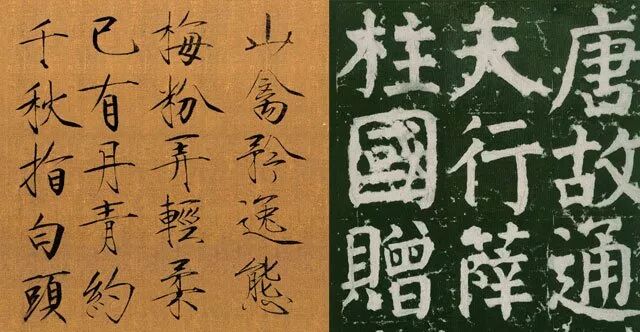 山禽矜逸態
梅粉弄輕柔
已有丹青約
千秋指白頭
唐故通
夫行薛
柱國贈